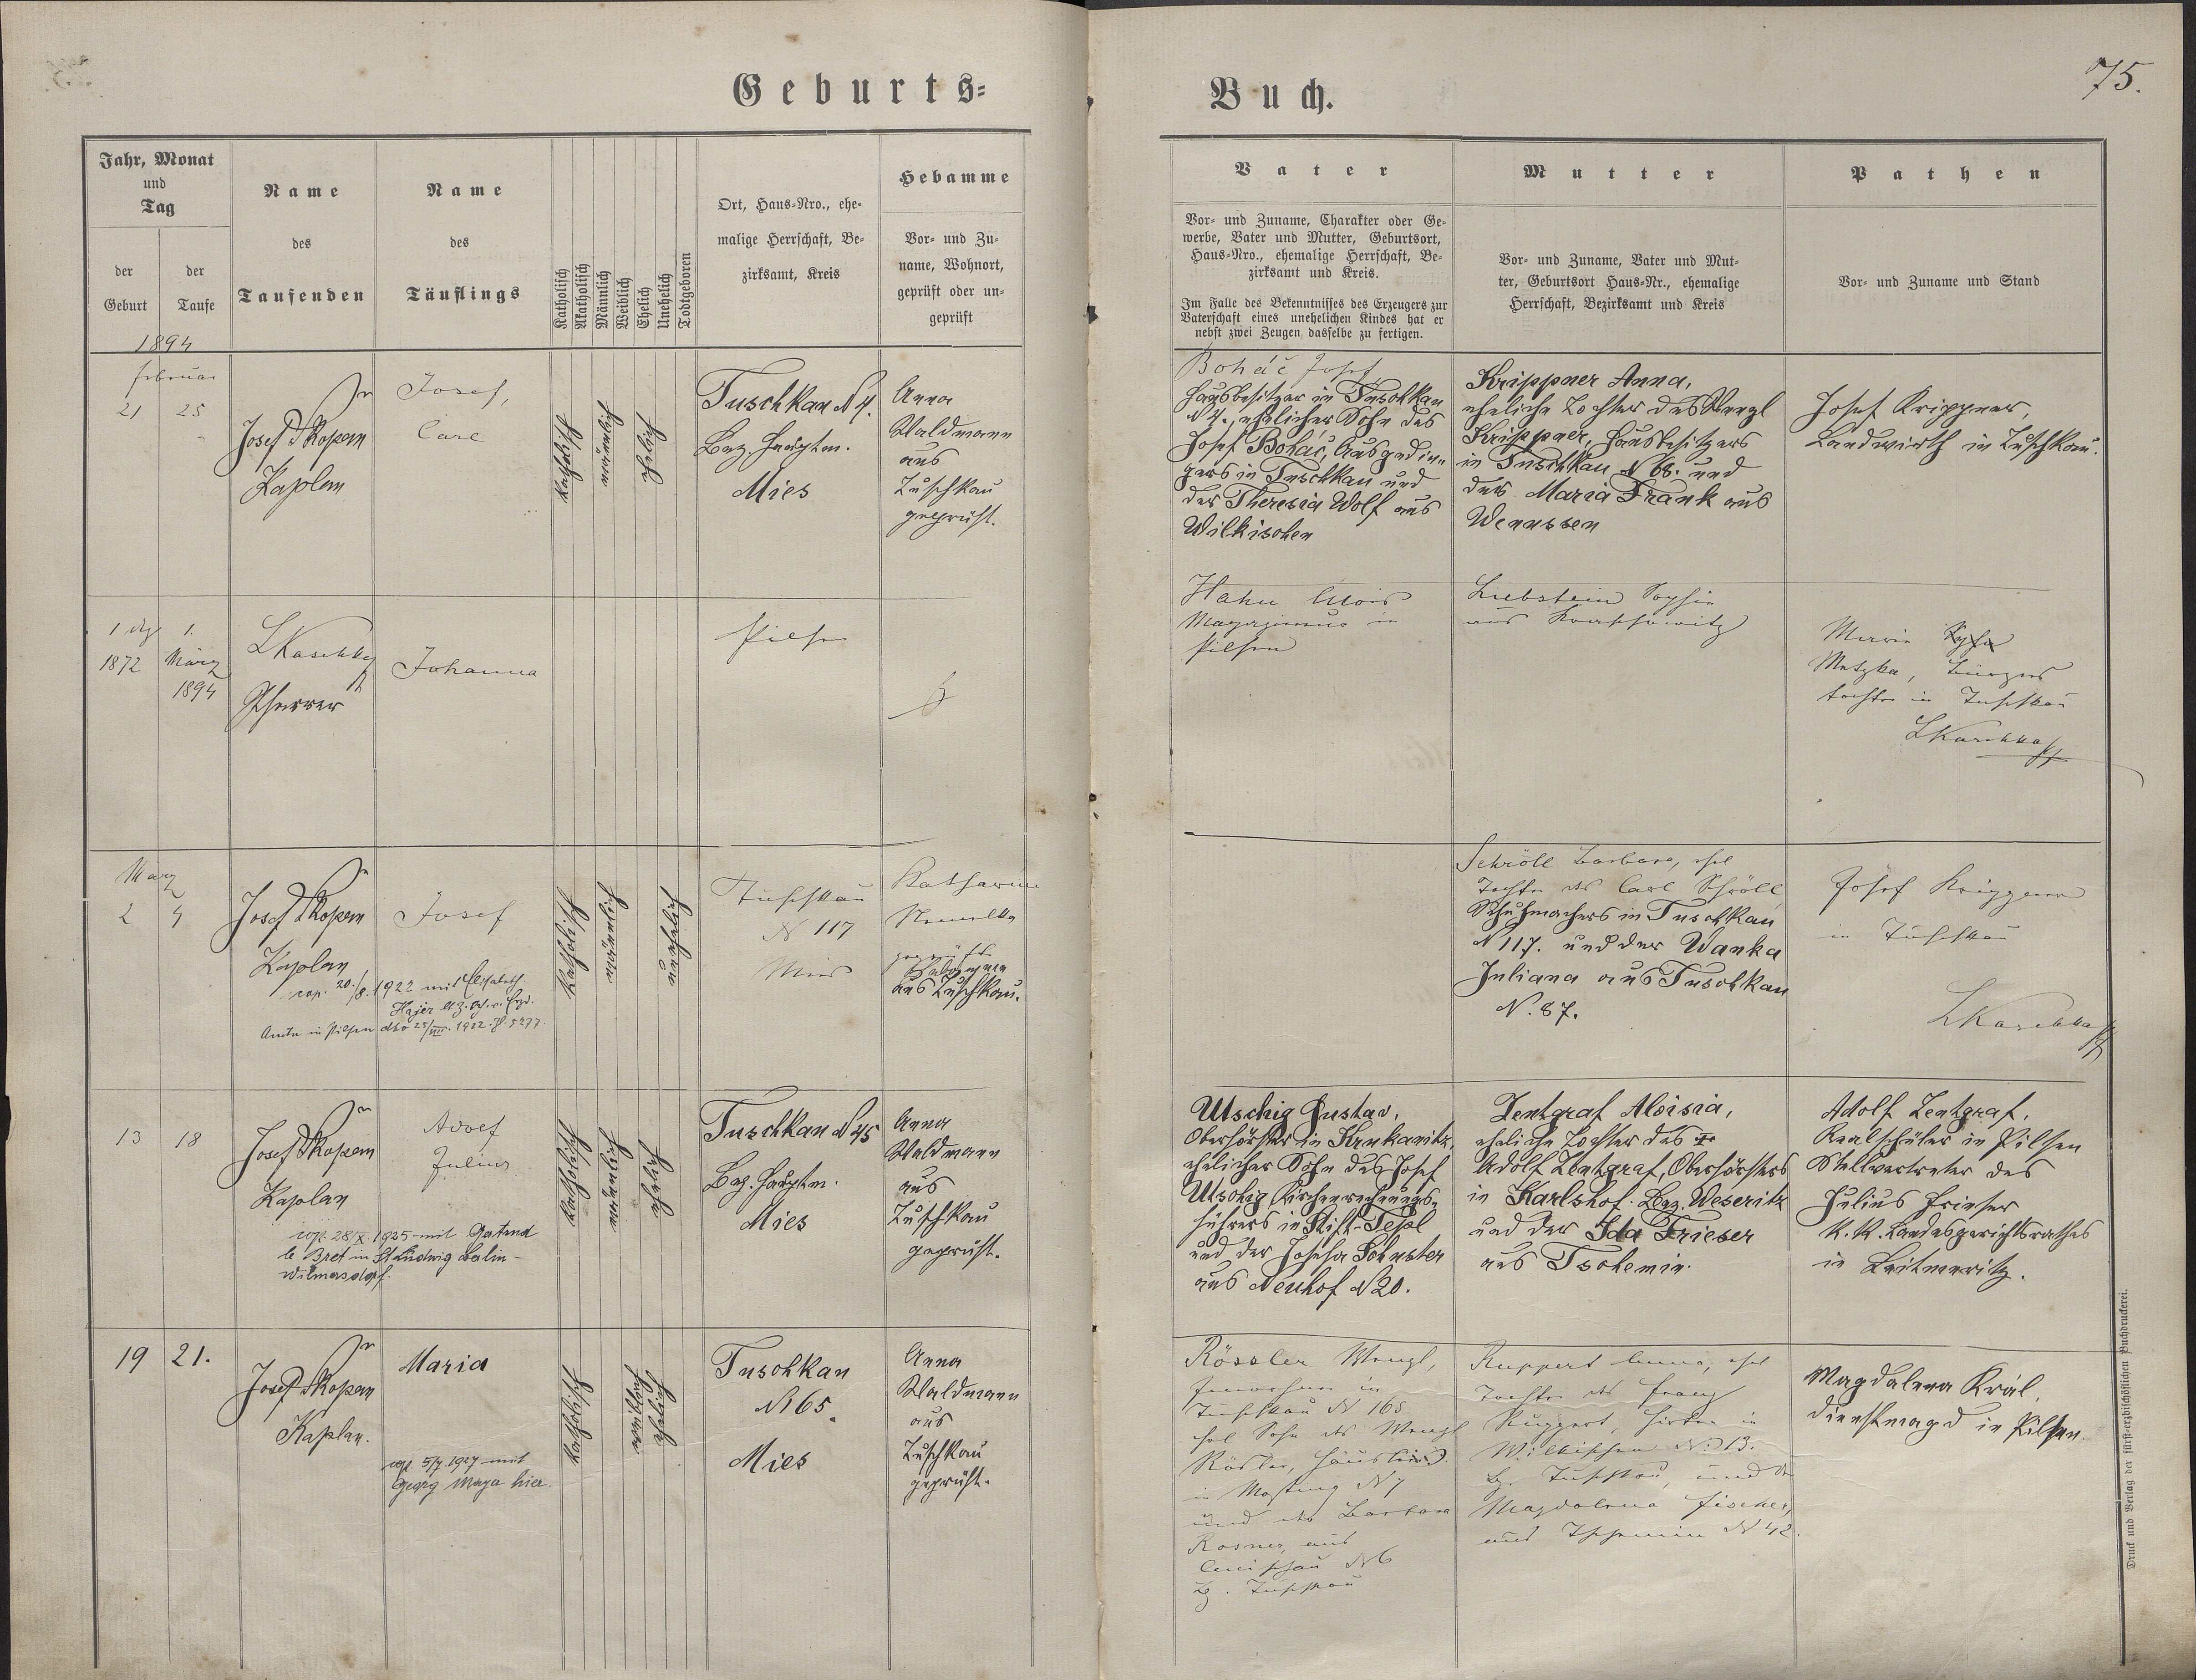 Geburts-
Buch.
75.
Jahr, Monat
und
Tag
der
Geburt
der
Taufe
1894
Name
des
Taufenden
Name
des
Täuflings
Katholisch
Akatholisch
Männlich
Weiblich
Ehelich
Unehelich
Todtgeboren
Ort, Haus-Nro., ehe-
malige Herrschaft, Be-
zirksamt, Kreis
Hebamme
Vor- und Zu-
name, Wohnort,
geprüft oder un-
geprüft
Vater
Vor- und Zuname, Charakter oder Ge-
werbe, Vater und Mutter, Geburtsort,
Haus-Nro., ehemalige Herrschaft, Be-
zirksamt und Kreis.
Im Falle des Bekenntnisses des Erzeugers zur
Vaterschaft eines unehelichen Kindes hat er
nebst zwei Zeugen dasselbe zu fertigen.
Mutter
Vor- und Zuname, Vater und Mut-
ter, Geburtsort Haus-Nr., ehemalige
Herrschaft, Bezirksamt und Kreis
Pathen
Vor- und Zuname und Stand
Februar
21 25
Josef Skopem
Kaplan
Josef,
Carl
katholisch
männlich
ehelich
Tuschkau N 4.
Bez. Hauptm.
Mies
Anna
Waldmann
aus
Tuschkau
geprüft.
Boháč Josef,
Hausbesitzer in Tuschkau
N 4., ehelicher Sohn des
Josef Boháč, Ausgedin-
gers in Tuschkau und
der Theresia Wolf aus
Wilkischen
Krippner Anna,
eheliche Tochter des Wenzl
Krippner, Hausbesitzers
in Tuschkau N 68. und
der Maria Frank aus
Wenussen
Josef Krippner,
Landwirth in Tuschkau.
1
1872
1.
März
1894
LKaschka
Pfarrer
Johanna
Pilsen
Hahn Alois
in
Pilsen
Liebstein Sophie
aus
Marie
Metzka, Bürgers
tochter in Tuschkau
LKaschka
März
2 4
Josef Skopem
Kaplan
Josef
cop. 20./8. 1922 mit Elisabeth
Hajer
Amte in Pilsen dto 25/VIII. 1922. Z. 5277.
katholisch
männlich
unehelich
Tuschkau
N 117
Mies
Katharina
geprüfte
Hebamme
aus Tuschkau.
Schröll Barbara, ehel
Tochter des Carl Schröll
Schuhmachers in Tuschkau
N 117. und der Wanka
Juliana aus Tuschkau
N. 87.
Josef Krippner
in Tuschkau
LKaschka
13 18
Josef Skopem
Kaplan
Adolf
Julius
cop. 28/X. 1925 mit Gertrud
le Bret in St Ludwig Berlin-
Wilmersdorf.
katholisch
männlich
ehelich
Tuschkau N 45
Bez. Hauptm.
Mies
Anna
Waldmann
aus
Tuschkau
geprüft.
Utschig Gustav,
Oberförster in Krukanitz,
ehelicher Sohn des Josef
Utschig, Kirchenrechnungs-
führers in Stift-Tepl
und der Josefa Schuster
aus Neuhof N 20.
Zentgraf Aloisia,
eheliche Tochter des
Adolf Zentgraf, Oberförsters
in Karlshof. Bez. Weseritz
und der Ida Frieser
aus Tschemin.
Adolf Zentgraf,
Realschüler in Pilsen
Stellvertreter des
Julius Frieser
K. K. Landesgerichtsrathes
in Leitmeritz.
19 21.
Josef Skopem
Kaplan.
Maria
cop. 5/7. 1927 mit
Georg Maya hier.
katholisch
weiblich
ehelich
Tuschkau
N 165.
Mies
Anna
Waldmann
aus
Tuschkau
geprüft.
Rössler Wenzl,
Inwohner in
Tuschkau N 165
ehel Sohn des Wenzl
Rössler, Häusler
in N 7
und der Barbara
Rosner, aus
N 6
Bz. Tuschkau
Ruppert Anna, ehel
Tochter des Franz
Ruppert, Hirten in
Wilkischen N. 13.
Bz. Tuschkau, und der
Magdalena Fischer,
aus Tschemin N 42.
Magdalena Král,
Dienstmagd in Pilsen.
Druck und Verlag der fürst-erzbischöflichen Buchdruckerei.